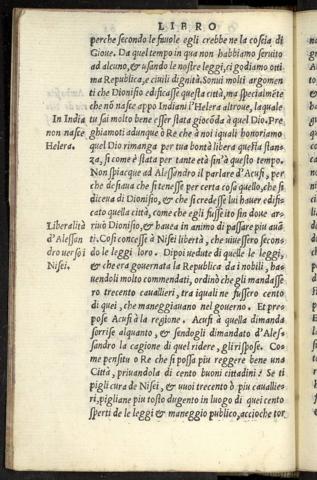 LIBRO
perche secondo le fauole egli crebbe ne la coscia di
Gioue. Da quel tempo in qua non habbiamo seruito
ad alcuno, & usando le nostre leggi, ci godiamo otti
ma Republica, e ciuili dignità. Sonui molti argomen
ti che Dionisio edificasse questa città, ma specialmẽte
che nõ nasce appo Indiani l'Helera altroue, laquale
In India
non nasce
Helera.
tu sai molto bene esser stata giocõda à quel Dio. Pre
ghiamoti adunque ò Re che à noi iquali honoriamo
quel Dio rimanga per tua bontà libera questa stan-
za, si come è stata per tante età sin'à questo tempo.
Non spiacque ad Alessandro il parlare d'Acufi, per
che desiaua che si tenesse per certa cosa quello, che si
diceua di Dionisio, & che si credesse lui hauer edifi-
cato quella città, come che egli fusse ito sin doue ar-
Liberalità
d'Alessan
dro uerso i
Nisei.
riuò Dionisio, & hauea in animo di passare piu auã-
ti. Cosi concesse à Nisei libertà, che uiuessero secon-
do le leggi loro. Dipoi uedute di quelle le leggi,
& che era gouernata la Republica da i nobili, ha-
uendoli molto commendati, ordinò che gli mandasse
ro trecento cauallieri, tra iquali ne fussero cento
di quei, che maneggiauano nel gouerno. Et pre-
pose Acufi à la regione. Acufi à quella dimanda
sorrise alquanto, & sendogli dimandato d'Ales-
sandro la cagione di quel ridere, gli rispose. Co-
me pensi tu ò Re che si possa piu reggere bene una
Città, priuandola di cento buoni cittadini? Se ti
pigli cura de Nisei, & uuoi trecento ò piu cauallie-
ri, pigliane piu tosto dugento in luogo di quei cento
sperti de le leggi & maneggio publico, accioche tor